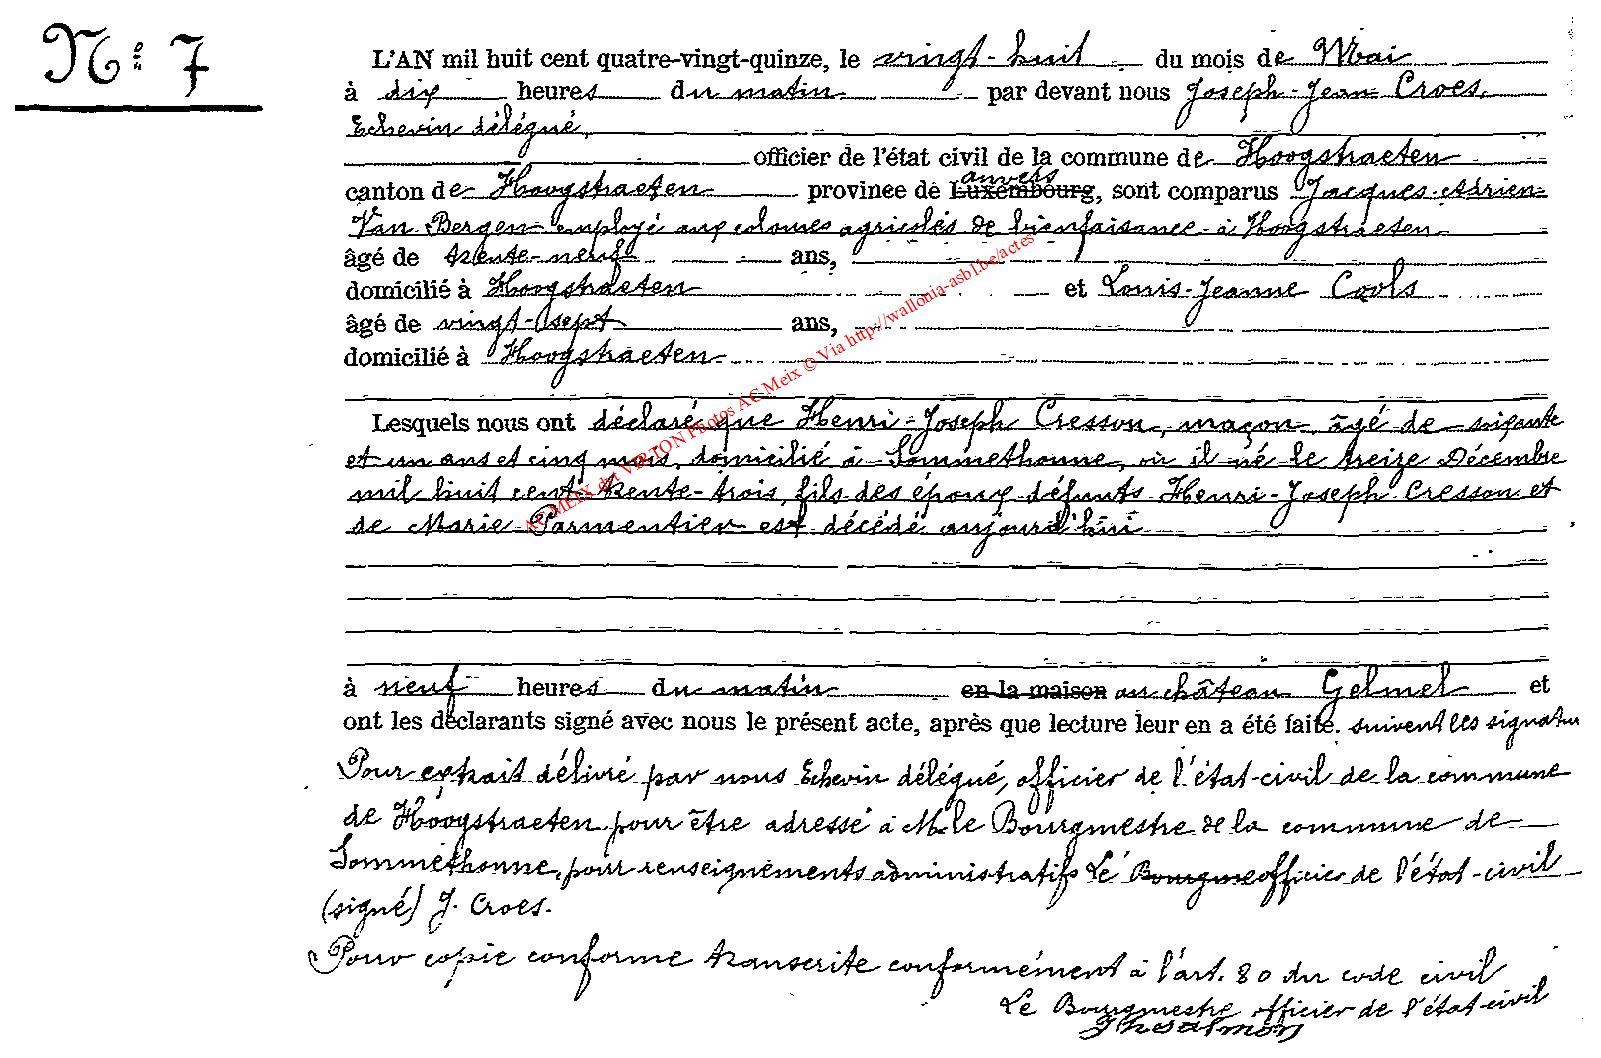 N° 7
L'AN mil huit cent quatre-vingt-quinze, le vingt-huit du mois de Mai
à dix heures du matin par devant nous Joseph-Jean Croes,
Echevin délégué,
officier de l'état civil de la commune de Hoogstraeten
anvers
canton de Hoogstraeten province de Luxembourg, sont comparus Jacques-Adrien
Van Bergen employé aux colonies agricoles de bienfaisance à Hoogstraeten
âgé de trente-neuf ans,
domicilié à Hoogstraeten et Louis-Jeanne Cools
âgé de vingt-sept ans,
domicilié à Hoogstraeten
Lesquels nous ont déclaré que Henri-Joseph Cresson, maçon, âgé de soixante
et un ans et cinq mois, domicilié à Sommethonne, où il né le treize Décembre
mil huit cent trente-trois, fils des époux défunts Henri-Joseph Cresson et
de Marie Parmentier est décédé aujourd'hui
à neuf heures du matin en la maison au château Gelmel et
ont les déclarants signé avec nous le présent acte, après que lecture leur en a été faite. suivent les signatur
Pour extrait délivré par nous Echevin délégué, officier de l'état-civil de la commune
de Hoogstraeten pour être adressé à M. le Bourgmestre de la commune de
Sommethonne, pour renseignements administratifs Le Bourgme officier de l'état-civil
(signé) J. Croes.
Pour copie conforme transcrite conformément à l'art. 80 du code civil
Le Bourgmestre officier de l'état-civil
AC MEIX dv VIRTON Photos AC Meix © Via http://wallonia-asbl.be/actes